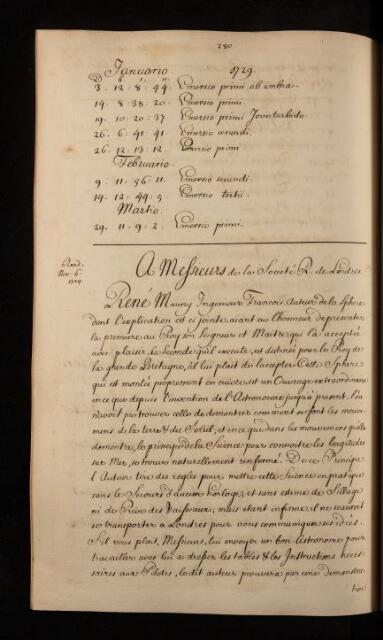 280
Januario 1729.
D h ' "
3. 12: 8: 44 Emersio primi ab umbra.
14. 8: 38: 20 Emersio primi.
19. 10: 20: 37 Emersio primi Jove turbido.
26. 6: 41: 41 Emersio secundi.
26. 12: 13: 12. Emersio primi
Februario.
9. 11: 56: 11. Emersio secundi.
14. 12: 44: 5. Emersio tertii.
Martio.
29. 11: 9: 2. Emersio primi.
Read.
Nov. 6
1729
A Messieurs de la Societé R. de Londres.
René Mauny Ingenieur Francois, Auteur de la Sphere
dont l'explication est ci jointe, aiant eu l'honneur de presenter
la premiere au Roy son Seigneur et Maitre qui l'a accepté
avec plaisir, la Seconde qu'il execute, est destinée pour le Roy de
la grande Bretagne, s'il lui plait de l'accepter. Cette Sphere
qui est montée proprement en cuivre, est un Ouvrage extraordinaire
en ce que depuis l'invention de l'Astronomie jusqu'à present, l'on
n'avoit pu trouver celle de demontrer comment se font les mouve-
mens de la terre & du Soleil, et en ce que dans les mouvemens qu'elle
demontre, le principe de la Science pour connoitre les longitudes
sur Mer, se trouve naturellement renfermé. De ce Principe
l'Auteur tire des regles pour mettre cette Science en pratique
sans le Secours d'aucun horloge, et sans estime de Sillage
ni de Rives des Vaisseaux, mais etant infirme il ne scauroit
se transporter a Londres pour vous communiquer ses idées.
S'il vous plait, Messieurs, lui envoyer un bon Astronome pour
travailler avec lui a dresser les tables & les Instructions neces-
saires aux Pilotes, ledit auteur prouvera par une demonstra-
tion